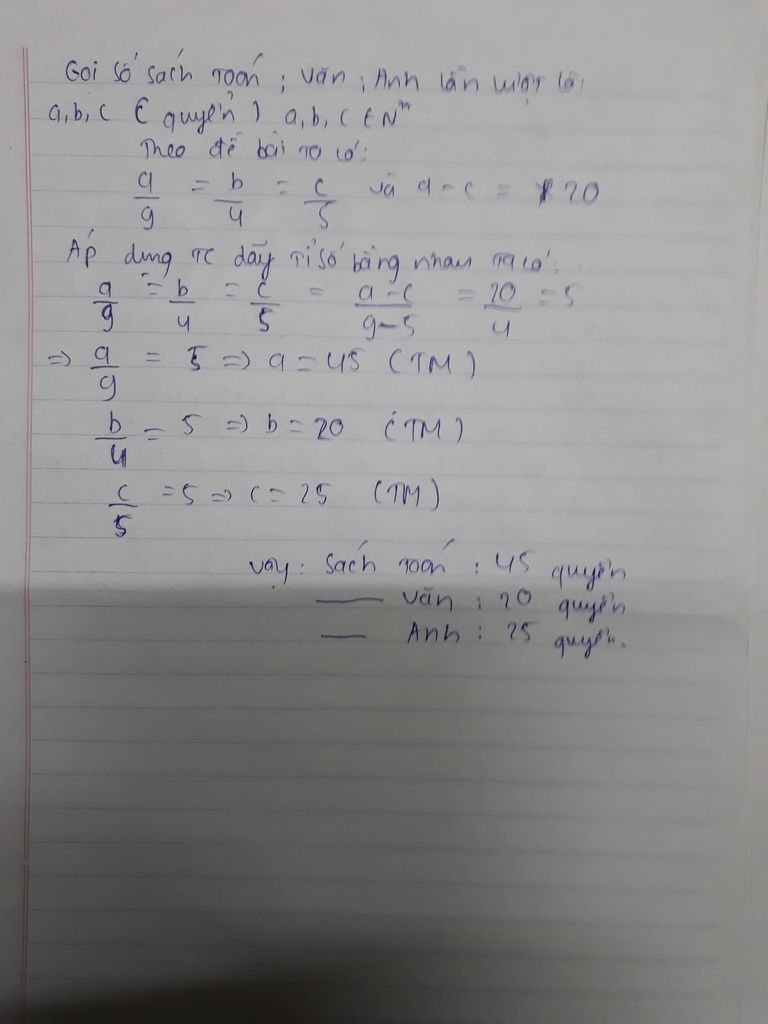 Gọi số sách Toán ; Văn ; Anh lần lượt là:
a,b,c ( quyển ) a,b,c ∈ N*
Theo đề bài ta có:
a/9 = b/4 = c/5 và a - c = 20
Áp dụng TC dãy tỉ số bằng nhau ta có:
a/9 = b/4 = c/5 = a-c/9-5 = 20/4 = 5
=> a/9 = 5 => a = 45 (TM)
b/4 = 5 => b = 20 (TM)
c/5 = 5 => c = 25 (TM)
Vậy: Sách Toán : 45 quyển
— Văn : 20 quyển
— Anh : 25 quyển.